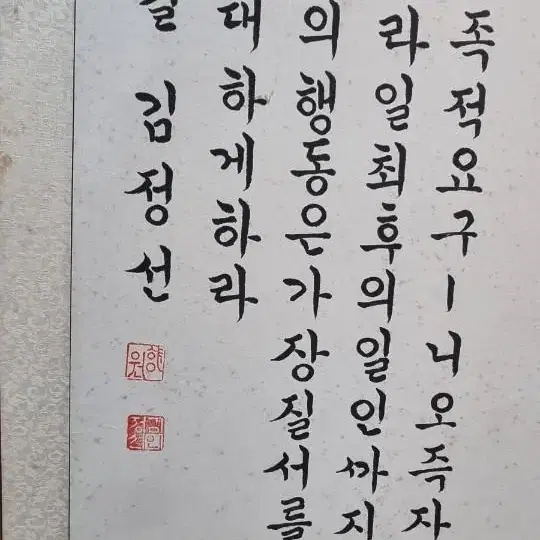 족적요구ㅣ니오즉자
라일최후의일인까지
의행동은가장질서를
대하게하라
김정선